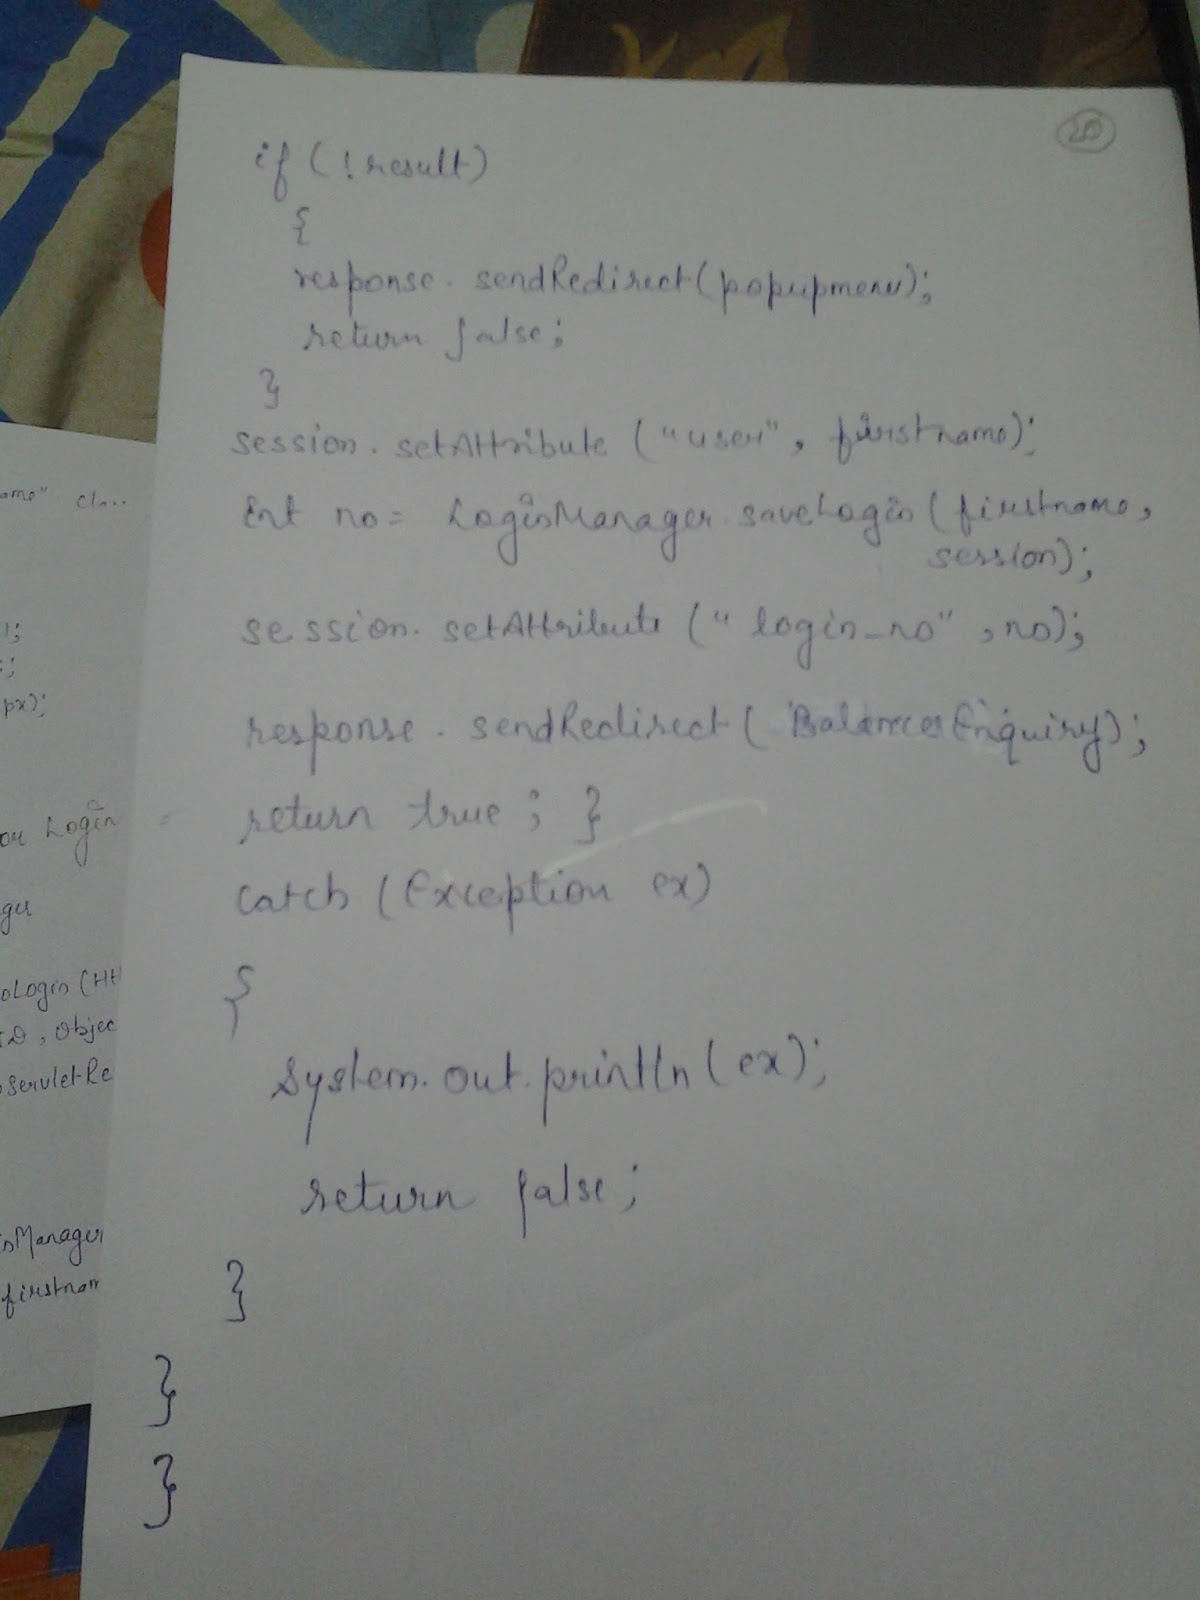 20
if (!result)
{
response. sendRedirect(popupmenu);
return false;
}
session. setAttribute ("user", firstname);
Int no= LoginManager. saveLogin (firstname,
session);
session. setAttribute ("login_no", no);
response. sendRedirect( BalanceEnquiry);
return true ; }
catch (Exception ex)
{
System.out.println(ex);
return false;
}
}
}
ame" cla..
1;
px);
or Login
ger
oLogin (Htt
ID, Objec
ServletRe
nManager
firstnam